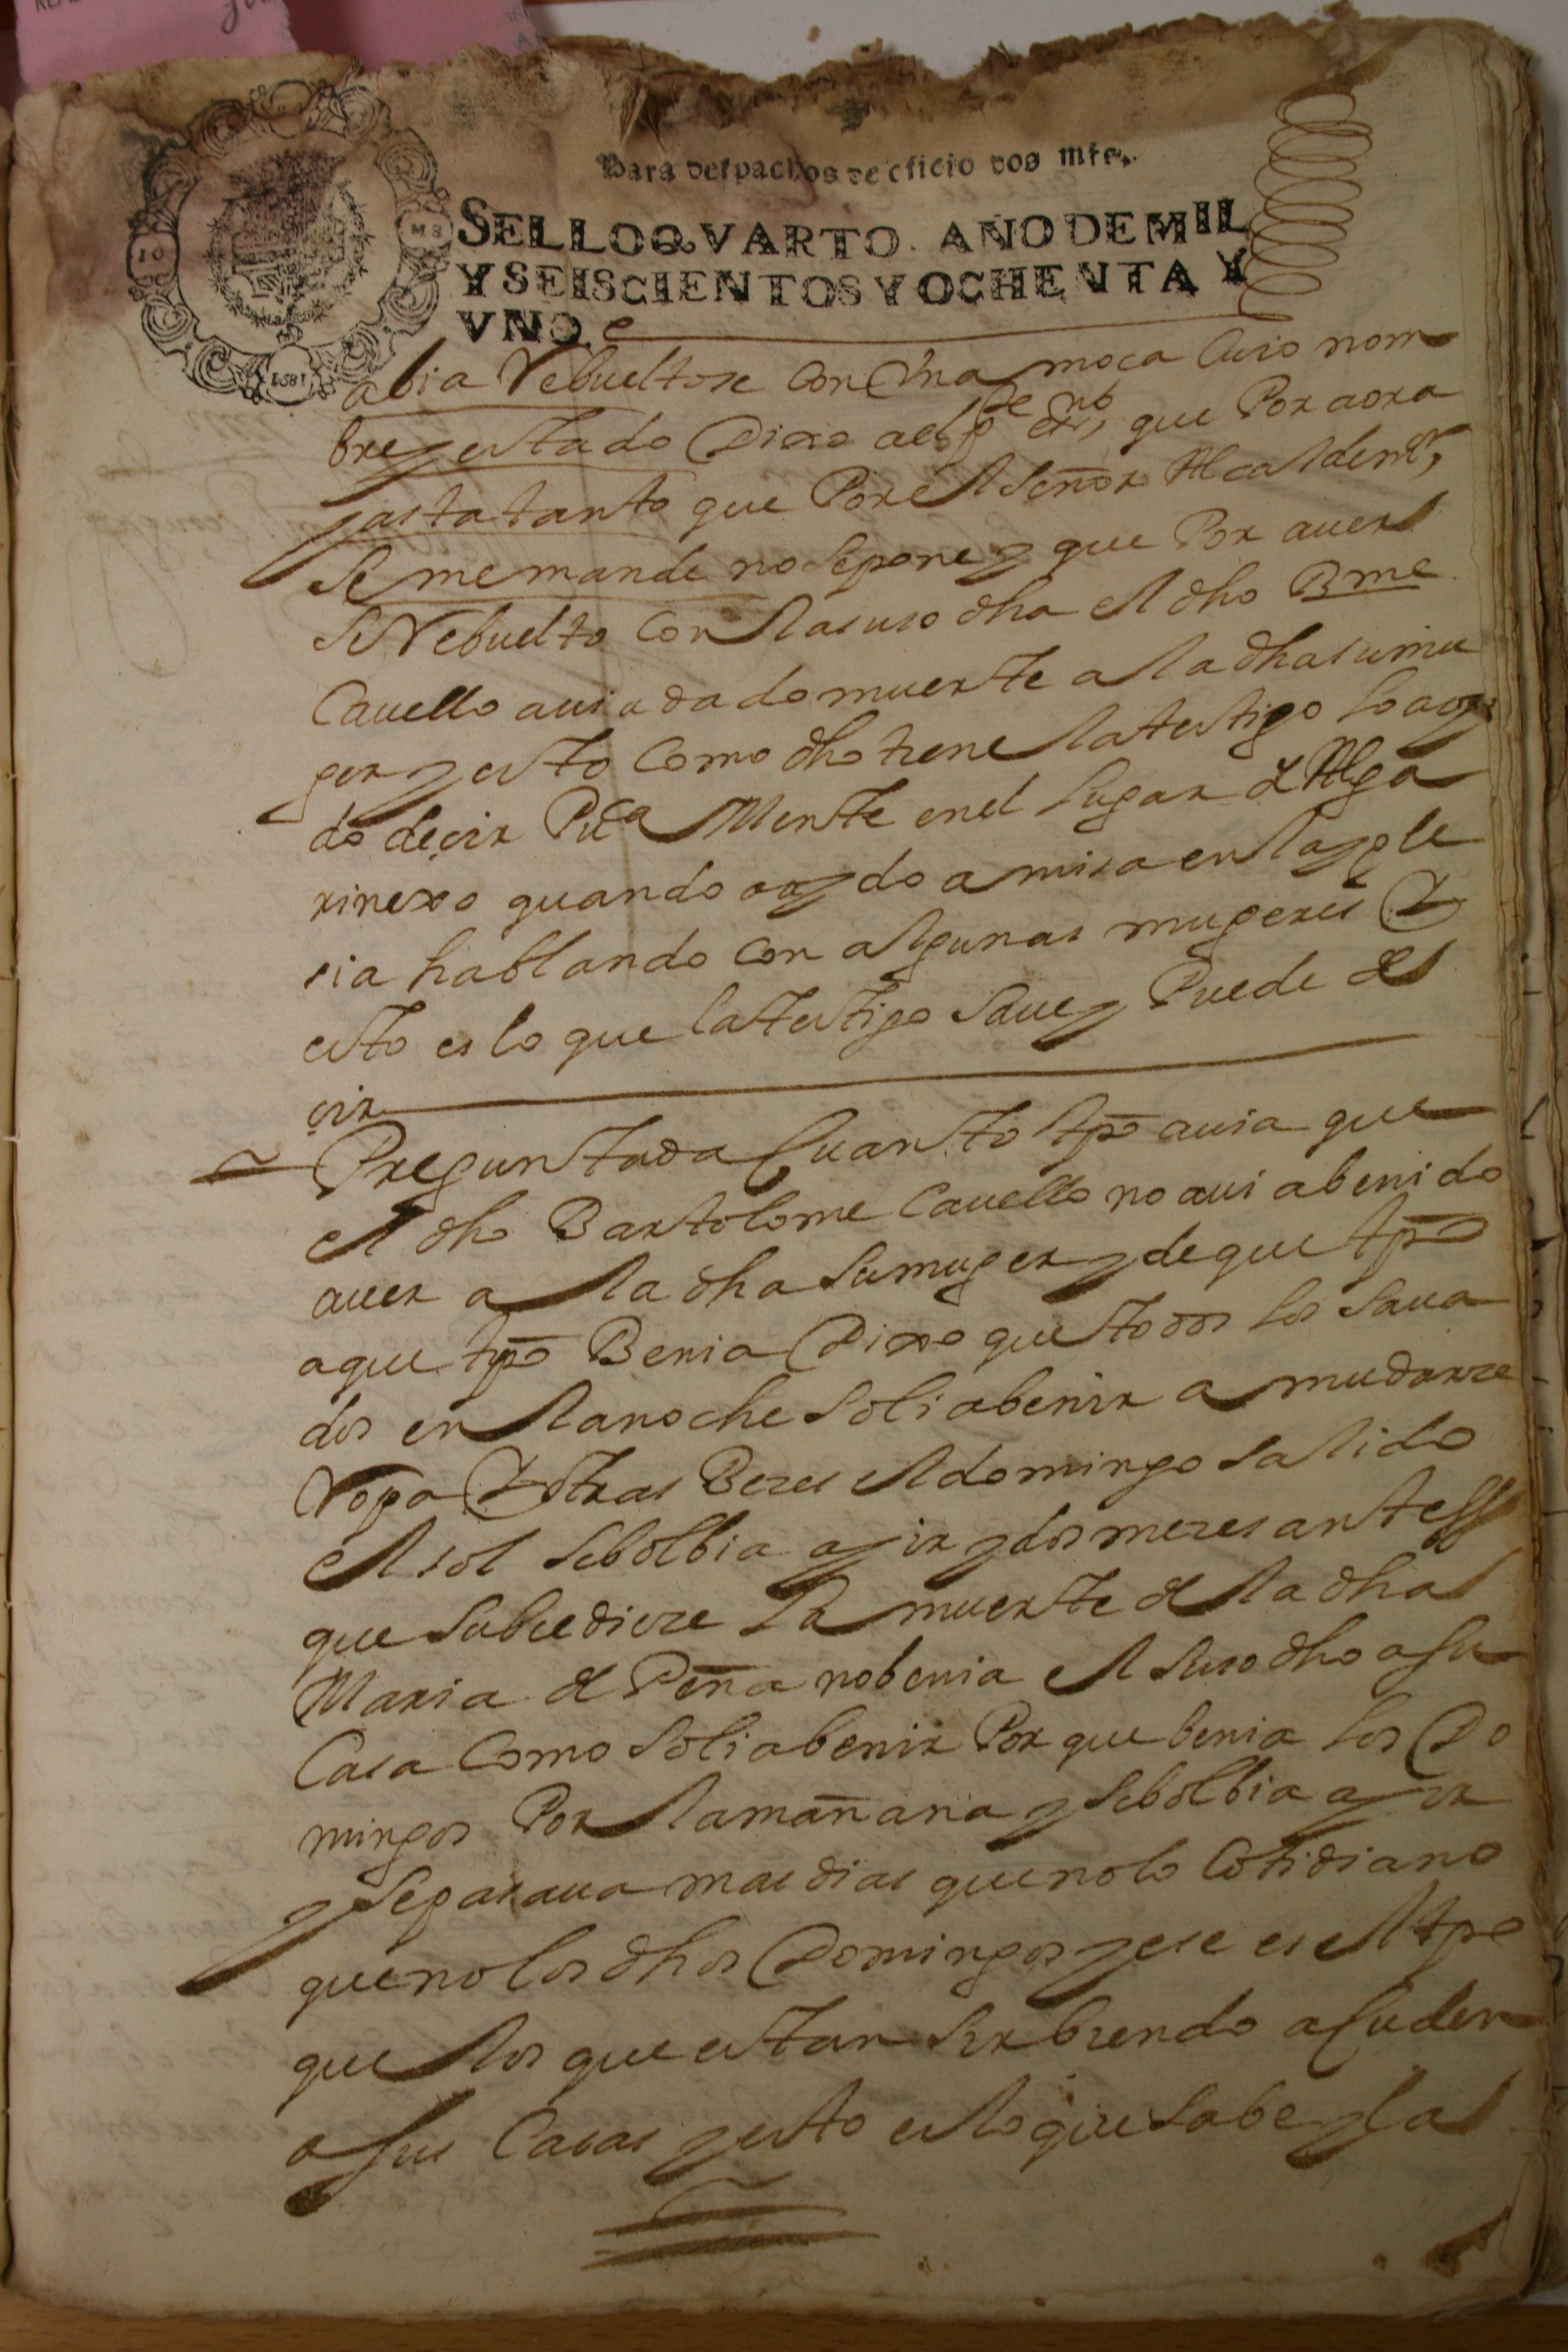 Para despachos de oficio dos mrs.
SELLO QVARTO. AÑO DE MIL
Y SEISCIENTOS Y OCHENTA Y
VNO.
abia Rebueltose con Vna moça Cuio nom
bre y estado Dixo a el pte esno, que Por aora
y asta tanto que Por el Señor Alcalde mr,
Se me mande no se pone y que Por auer
Se Rebuelto con la suso dha el dho Bme
Cauello auia dado muerte a la dha su mu
ger y esto Como dho tiene la testigo lo a oy
do deçir Puca Mente en el lugar de Alga
rinexo quando a oydo a misa en la ygle
sia hablando con algunas mugeres Y
esto es lo que la testigo saue y Puede de
çir
Preguntada Cuanto tpo auia que
el dho Bartolome Cauello no auia benido
a uer a la dha su muger y de que tpo
a que tpo Benia Dixo que todos los saua
dos en la noche solia benir a mudarse
Ropa Y otras Beces el domingo salido
el sol se bolbia a yir y dos meses antes
que subcediese la muerte de la dha
Maria de Peña no benia el suso dho a su
Casa Como solia benir Por que benia los Do
mingos Por la mañana y se bolbia a yir
y se pasaua mas dias que no lo Cotidiano
que no los dhos Domingos y ese es el tpo
que los que estan sirbiendo acuden
a sus Casas y esto es lo que sabe y la
10
MS
1681